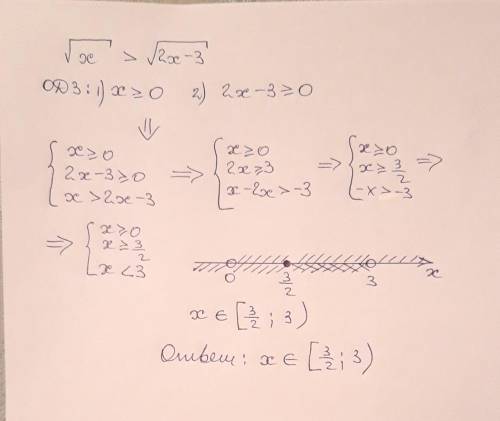 √x > √2x-3
ОДЗ: 1) x ≥ 0 2) 2x-3 ≥ 0
⇓
{ x ≥ 0 ; 2x-3 ≥ 0 ; x > 2x-3 ⇒ { x ≥ 0 ; 2x ≥ 3 ; x-2x > -3 ⇒ { x ≥ 0 ; x ≥ 3/2 ; -x > -3 ⇒
⇒ { x ≥ 0 ; x ≥ 3/2 ; x < 3
0 3/2 3 x
x ∈ [3/2 ; 3)
Ответ: x ∈ [3/2 ; 3)